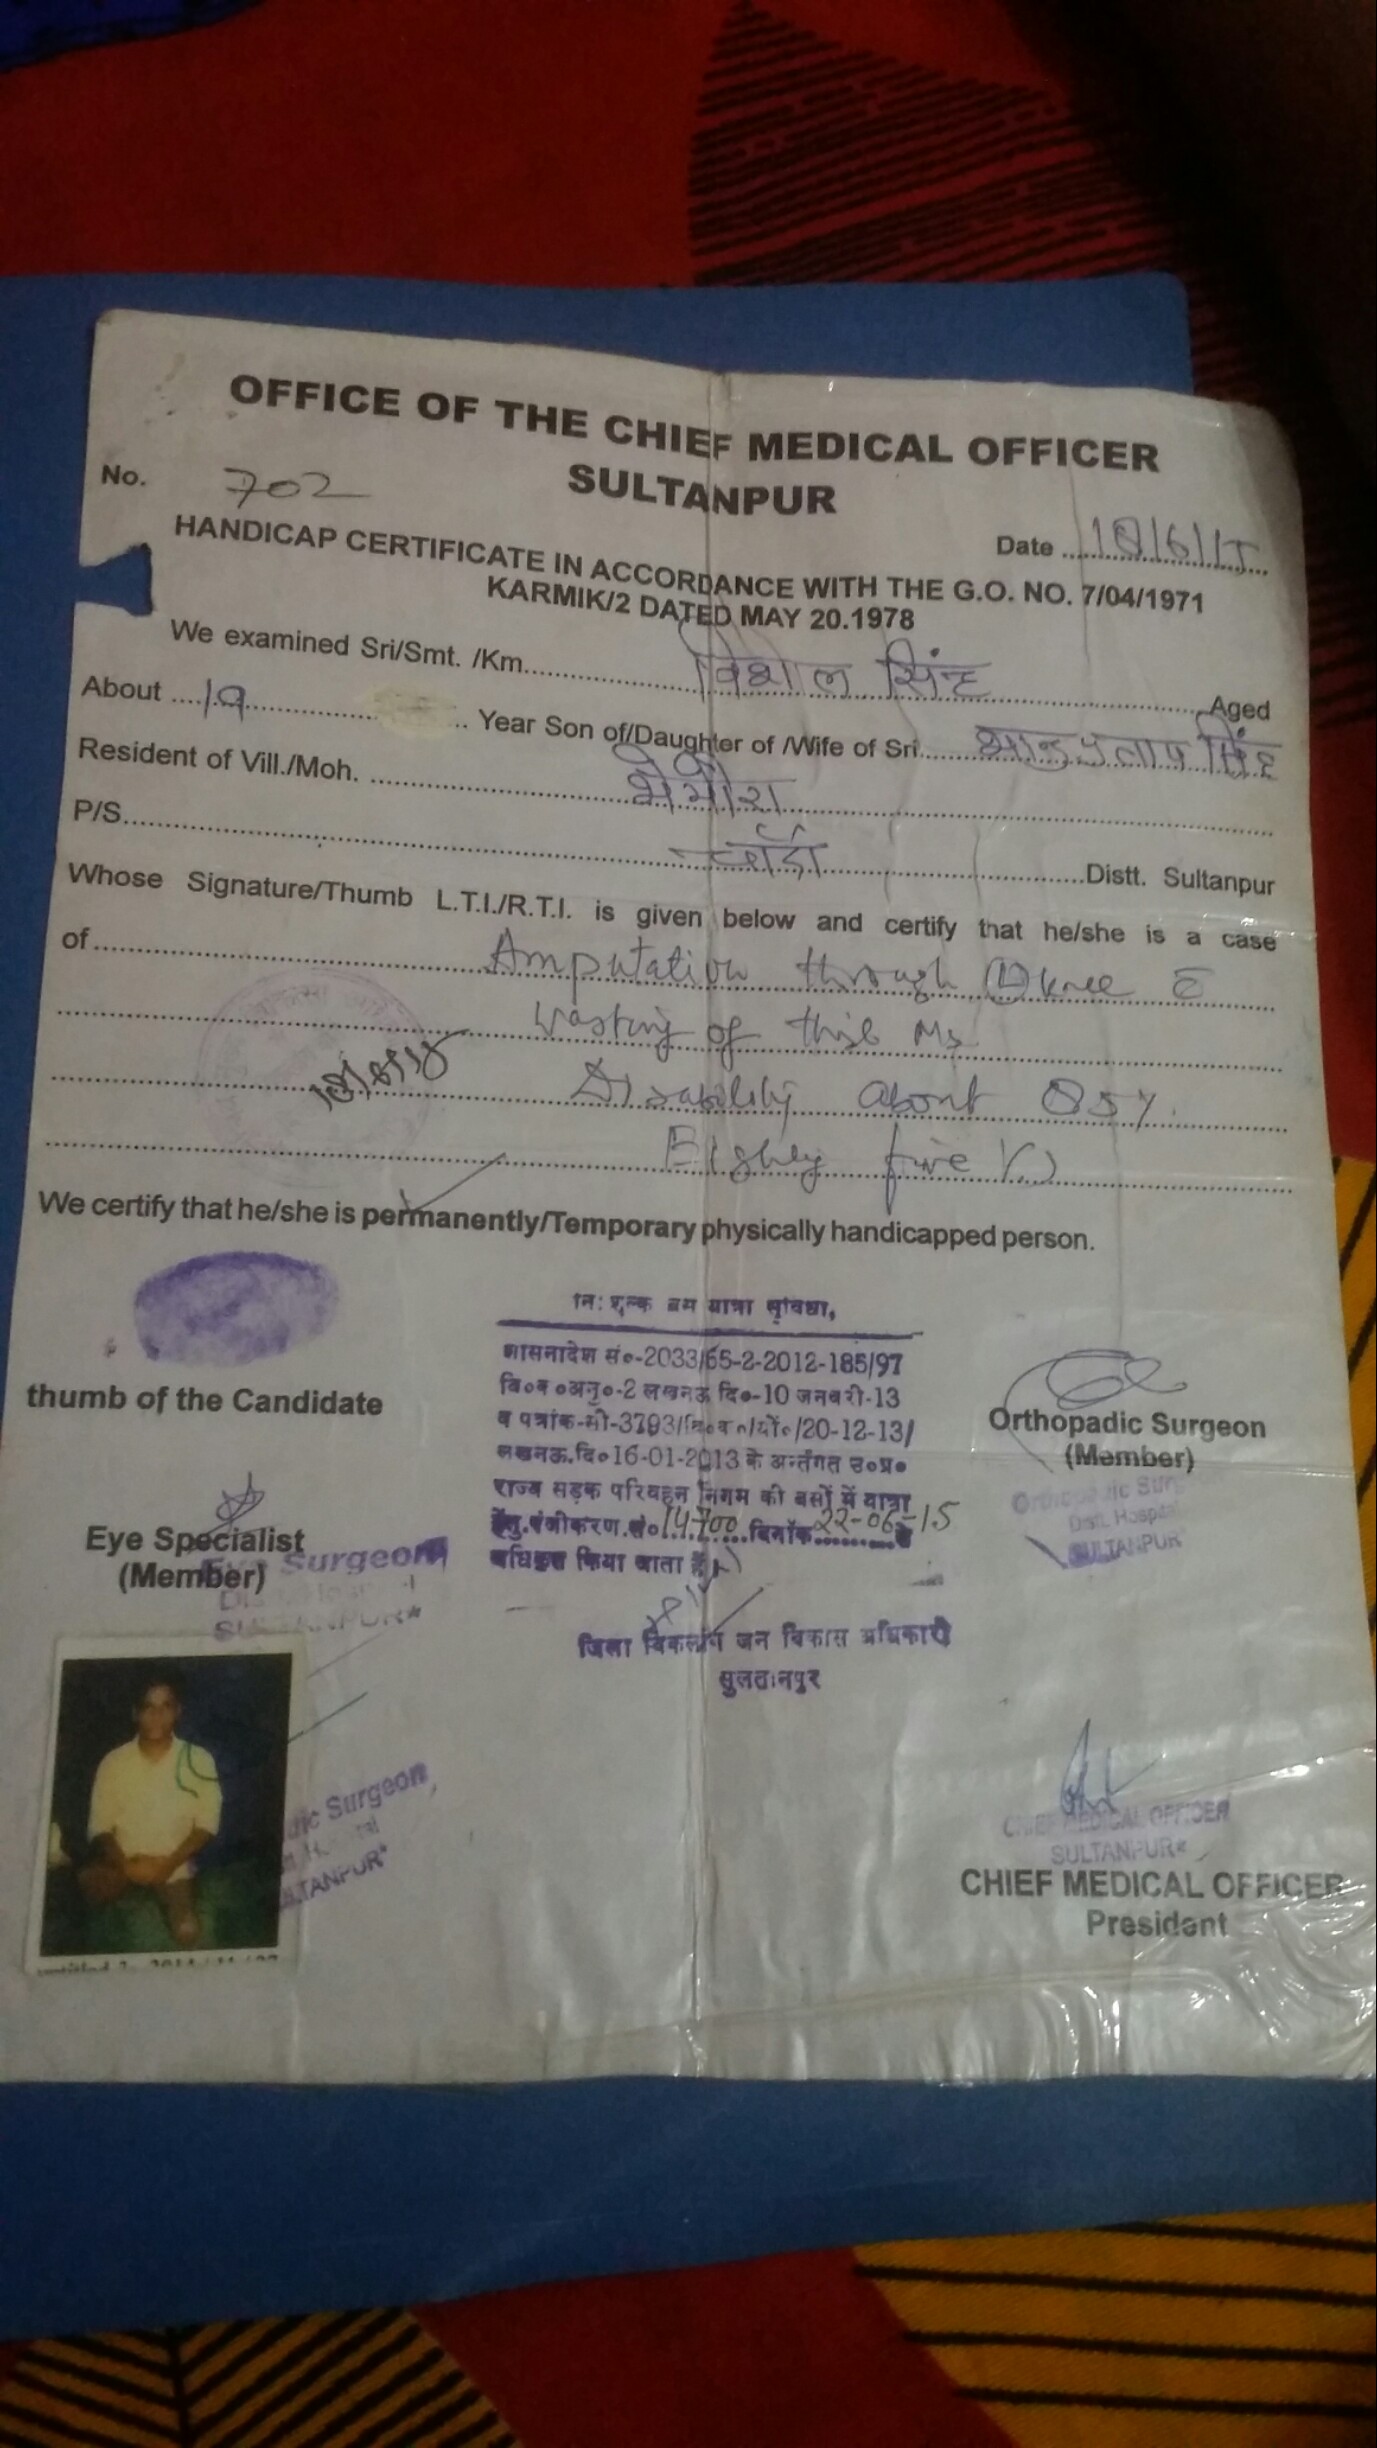 OFFICE OF THE CHIEF MEDICAL OFFICER
SULTANPUR
No. 702
Date 18/6/15
HANDICAP CERTIFICATE IN ACCORDANCE WITH THE G.O. NO. 7/04/1971
KARMIK/2 DATED MAY 20.1978
We examined Sri/Smt. /Km. विशाल सिंह Aged
About 19 Year Son of/Daughter of /Wife of Sri भानु प्रताप सिंह
Resident of Vill./Moh.
P/S. चाँदा Distt. Sultanpur
Whose Signature/Thumb L.T.I./R.T.I. is given below and certify that he/she is a case
of Amputation through (L) knee c̄
wasting of thigh Ms
Disability about 85%
Eighty five %
We certify that he/she is permanently/Temporary physically handicapped person.
नि: शुल्क बस यात्रा सुविधा,
शासनादेश सं०-2033/65-2-2012-185/97
वि०क०अनु०-2 लखनऊ दि०-10 जनवरी-13
व पत्रांक-सी-3793/वि०क०/यों०/20-12-13/
लखनऊ.दि०16-01-2013 के अर्न्तगत उ०प्र०
राज्य सड़क परिवहन निगम की बसों में यात्रा
हेतु.पंजीकरण.सं० 14700 दिनाँक 22-06-15 के
अधिकृत किया जाता है।
जिला विकलांग जन विकास अधिकारी
सुलतानपुर
thumb of the Candidate
Orthopadic Surgeon
(Member)
Orthopaedic Surgeon
Distt. Hospital
SULTANPUR
Eye Specialist
(Member)
Eye Surgeon
SULTANPUR
Surgeon
SULTANPUR
CHIEF MEDICAL OFFICER
SULTANPUR
CHIEF MEDICAL OFFICER
President